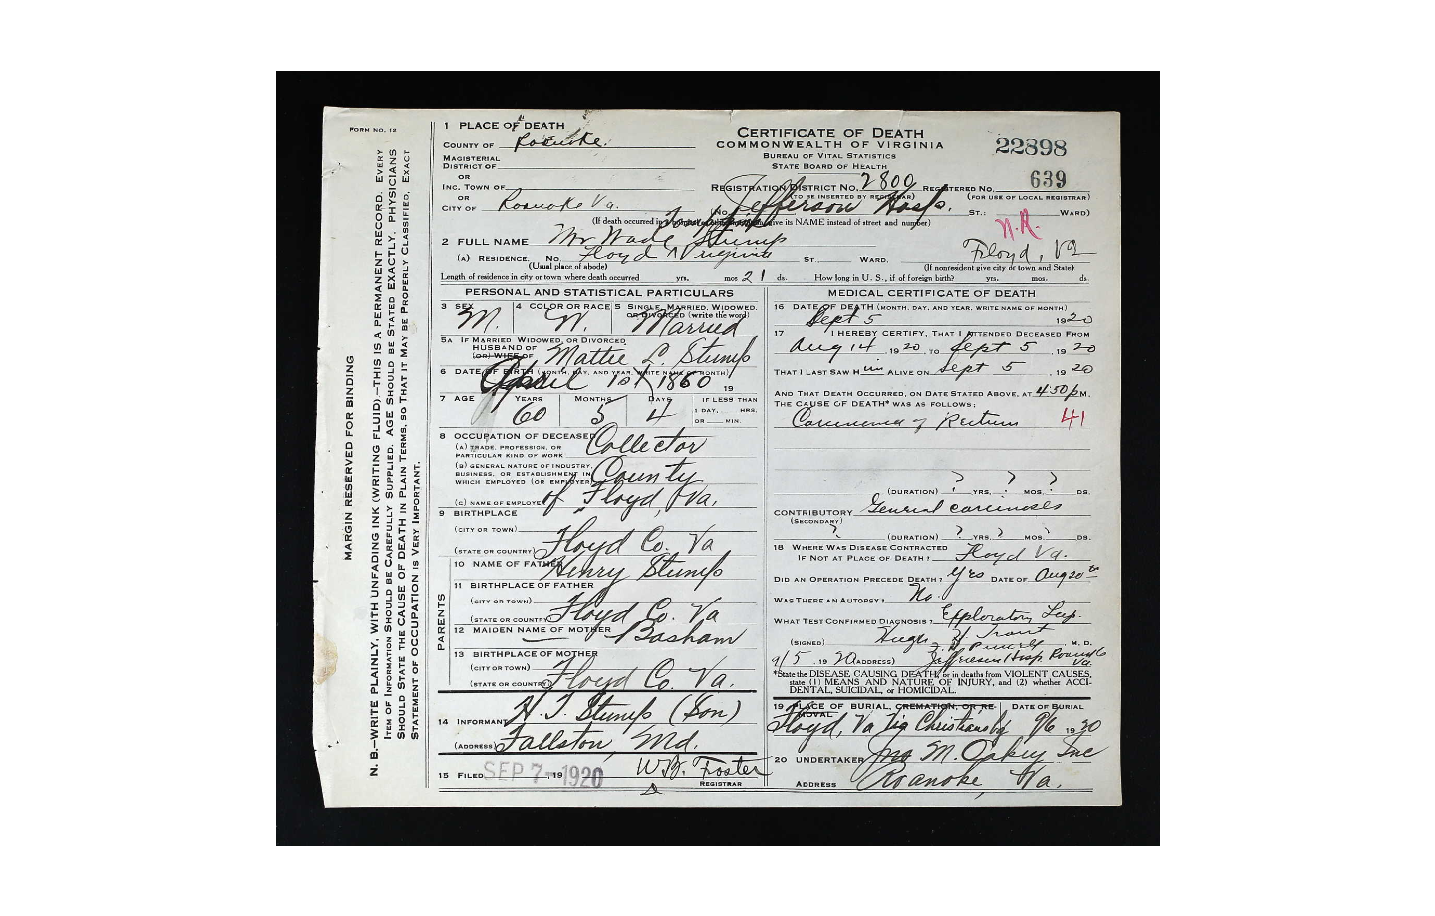 FORM NO. 12
MARGIN RESERVED FOR BINDING
N. B.—WRITE PLAINLY, WITH UNFADING INK (WRITING FLUID).—THIS IS A PERMANENT RECORD. EVERY
ITEM OF INFORMATION SHOULD BE CAREFULLY SUPPLIED. AGE SHOULD BE STATED EXACTLY. PHYSICIANS
SHOULD STATE THE CAUSE OF DEATH IN PLAIN TERMS, SO THAT IT MAY BE PROPERLY CLASSIFIED. EXACT
STATEMENT OF OCCUPATION IS VERY IMPORTANT.
1 PLACE OF DEATH
COUNTY OF Roanoke.
MAGISTERIAL
DISTRICT OF
OR
INC. TOWN OF
OR
CITY OF Roanoke Va.
CERTIFICATE OF DEATH
COMMONWEALTH OF VIRGINIA
BUREAU OF VITAL STATISTICS
STATE BOARD OF HEALTH
22898
REGISTRATION DISTRICT NO. 2800 REGISTERED NO. 639
(TO BE INSERTED BY REGISTRAR) (FOR USE OF LOCAL REGISTRAR)
(No. Jefferson Hosp. ST.: WARD)
(If death occurred in a give its NAME instead of street and number)
N.R.
2 FULL NAME Mr Wade Stump
(A) RESIDENCE. No. Floyd Virginia ST. WARD. Floyd, Va
(Usual place of abode) (If nonresident give city or town and State)
Length of residence in city or town where death occurred yrs. mos 21 ds. How long in U. S., if of foreign birth? yrs. mos. ds.
PERSONAL AND STATISTICAL PARTICULARS
3 SEX M.
4 COLOR OR RACE W.
5 SINGLE, MARRIED, WIDOWED, OR DIVORCED (write the word) Married
5A IF MARRIED, WIDOWED, OR DIVORCED
HUSBAND OF
(OR) WIFE OF Mattie L. Stump
6 DATE OF BIRTH (MONTH, DAY, AND YEAR, WRITE NAME OF MONTH)
April 1st 1860 19
7 AGE YEARS MONTHS DAYS IF LESS THAN
60 5 4 1 DAY, HRS.
OR MIN.
8 OCCUPATION OF DECEASED
(A) TRADE, PROFESSION, OR
PARTICULAR KIND OF WORK Collector
(B) GENERAL NATURE OF INDUSTRY,
BUSINESS, OR ESTABLISHMENT IN
WHICH EMPLOYED (OR EMPLOYER) County
(C) NAME OF EMPLOYER of Floyd, Va.
9 BIRTHPLACE
(CITY OR TOWN)
(STATE OR COUNTRY) Floyd Co. Va
PARENTS
10 NAME OF FATHER Henry Stump
11 BIRTHPLACE OF FATHER
(CITY OR TOWN)
(STATE OR COUNTRY) Floyd Co. Va
12 MAIDEN NAME OF MOTHER Basham
13 BIRTHPLACE OF MOTHER
(CITY OR TOWN)
(STATE OR COUNTRY) Floyd Co. Va.
14 INFORMANT H. T. Stump (Son)
(ADDRESS) Fallston, Md.
15 FILED SEP 7-, 19 1920 W.B. Foster
REGISTRAR
MEDICAL CERTIFICATE OF DEATH
16 DATE OF DEATH (MONTH, DAY, AND YEAR, WRITE NAME OF MONTH)
Sept 5 1920
17 I HEREBY CERTIFY, THAT I ATTENDED DECEASED FROM
Aug 14, 1920, TO Sept 5, 1920
THAT I LAST SAW H im ALIVE ON Sept 5, 1920
AND THAT DEATH OCCURRED, ON DATE STATED ABOVE, AT 4:50 P M.
THE CAUSE OF DEATH* WAS AS FOLLOWS:
Carcinoma of Rectum 41
(DURATION) ? YRS. ? MOS. ? DS.
CONTRIBUTORY General carcinosis
(SECONDARY)
? (DURATION) ? YRS. ? MOS. ? DS.
18 WHERE WAS DISEASE CONTRACTED
IF NOT AT PLACE OF DEATH? Floyd Va.
DID AN OPERATION PRECEDE DEATH? Yes DATE OF Aug 20th
WAS THERE AN AUTOPSY? No.
WHAT TEST CONFIRMED DIAGNOSIS? Exploratory Lap.
(SIGNED) Hugh H. Trout M. D.
9/5, 1920 (ADDRESS) Jefferson Hosp Roanoke
Va.
*State the DISEASE CAUSING DEATH, or in deaths from VIOLENT CAUSES,
state (1) MEANS AND NATURE OF INJURY, and (2) whether ACCI-
DENTAL, SUICIDAL, or HOMICIDAL.
19 PLACE OF BURIAL, CREMATION, OR RE- DATE OF BURIAL
MOVAL
Floyd, Va Via Christiansbg 9/6 1920
20 UNDERTAKER Jno M. Oakey Inc
ADDRESS Roanoke, Va.